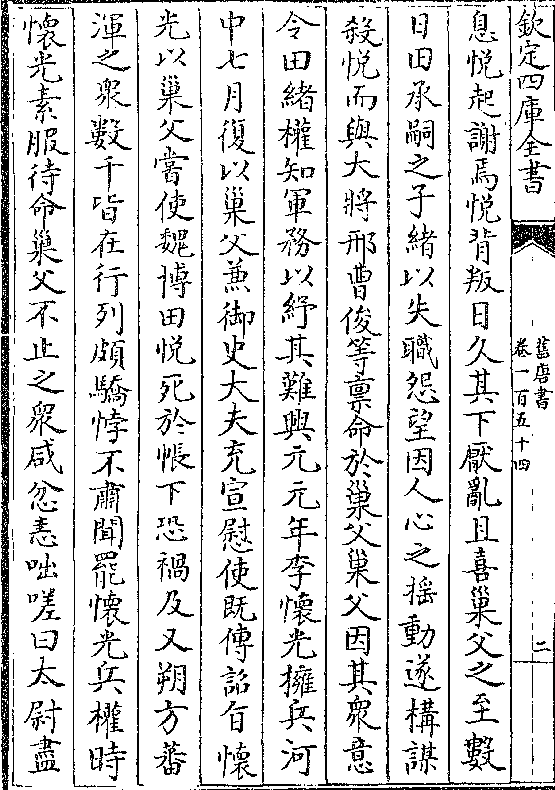 欽定四庫全書
舊唐書
卷一百五十四
二
息悦起謝焉悦背叛日久其下厭亂且喜巢父之至數
日田承嗣之子緒以失職怨望因人心之揺動遂構謀
殺悦而與大將邢曹俊等稟命於巢父巢父因其衆意
令田緒權知軍務以紓其難興元元年李懷光擁兵河
中七月復以巢父兼御史大夫充宣慰使既傳詔㫖懷
光以巢父嘗使魏博田悦死於帳下恐禍及又朔方蕃
渾之衆數千皆在行列頗驕悖不肅聞罷懷光兵權時
懷光素服待命巢父不止之衆咸忿恚咄嗟曰太尉盡